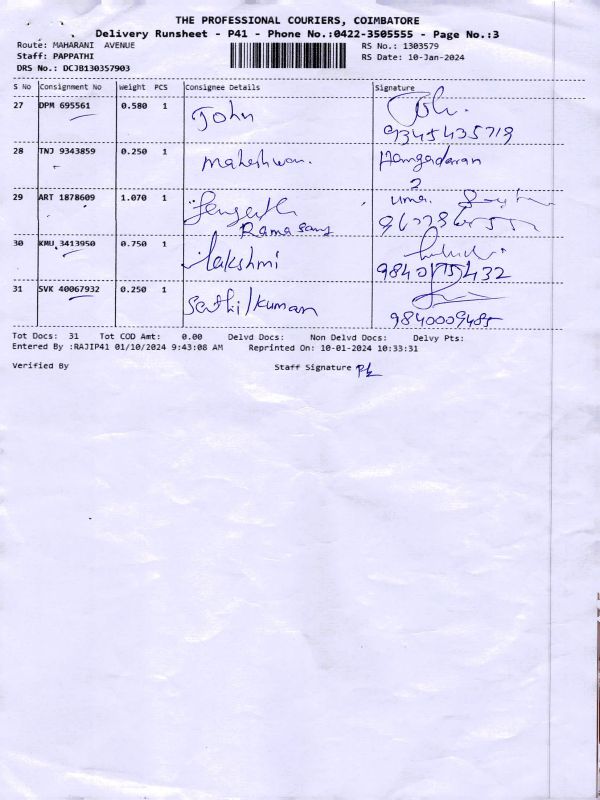 THE PROFESSIONAL COURIERS, COIMBATORE
Delivery Runsheet - P41 - Phone No.:0422-3505555 - Page No.:3
Route: MAHARANI AVENUE RS No.: 1303579
Staff: PAPPATHI RS Date: 10-Jan-2024
DRS No.: DCJB130357903
S No Consignment No Weight PCS Consignee Details Signature
27 DPM 695561 0.580 1 John
9345435719
28 TNJ 9343859 0.250 1
29 ART 1878609 1.070 1 uma
Ramasamy
30 KMU 3413950 0.750 1 Lakshmi
31 SVK 40067932 0.250 1 Senthilkumar
9840009485
Tot Docs: 31 Tot COD Amt: 0.00 Delvd Docs: Non Delvd Docs: Delvy Pts:
Entered By :RAJIP41 01/10/2024 9:43:08 AM Reprinted On: 10-01-2024 10:33:31
Verified By Staff Signature